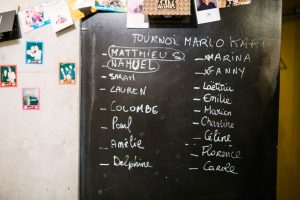 TOURNOI MARIO KART
- MATTHIEU S
- NAHUEL
- SARAH
- LAUREN
- COLOMBE
- Paul
- Amélie
- Delphine
- xMARINA
- xFANNY
- Laëtitia
- Emilie
- Marion
- Charline
- Céline
- Florence
- Carole